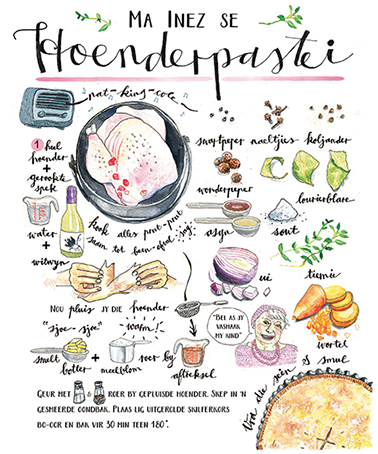 MA INEZ SE
Hoenderpastei
nat-king-cole
1 heel
hoender
+
gerookte
spek
swartpeper naeltjies koljander
wonderpeper
lourierblare
water
+
witwyn
kook alles prut-prut
saam tot been
asyn
sout
ui
tiemie
NOU PLUIS JY DIE hoender
"sjoe-sjoe" warm!
"BEL AS JY
VASHAAK
MY KIND"
wortel
smelt
botter
+
meelblom
roer by
aftreksel
Vra die seën & smul
GEUR MET & ROER BY GEPLUISDE HOENDER. SKEP IN 'N
GESMEERDE OONDBAK. PLAAS LIG UITGEROLDE SKILFERKORS
BO-OOR EN BAK VIR 30 MIN TEEN 180°.